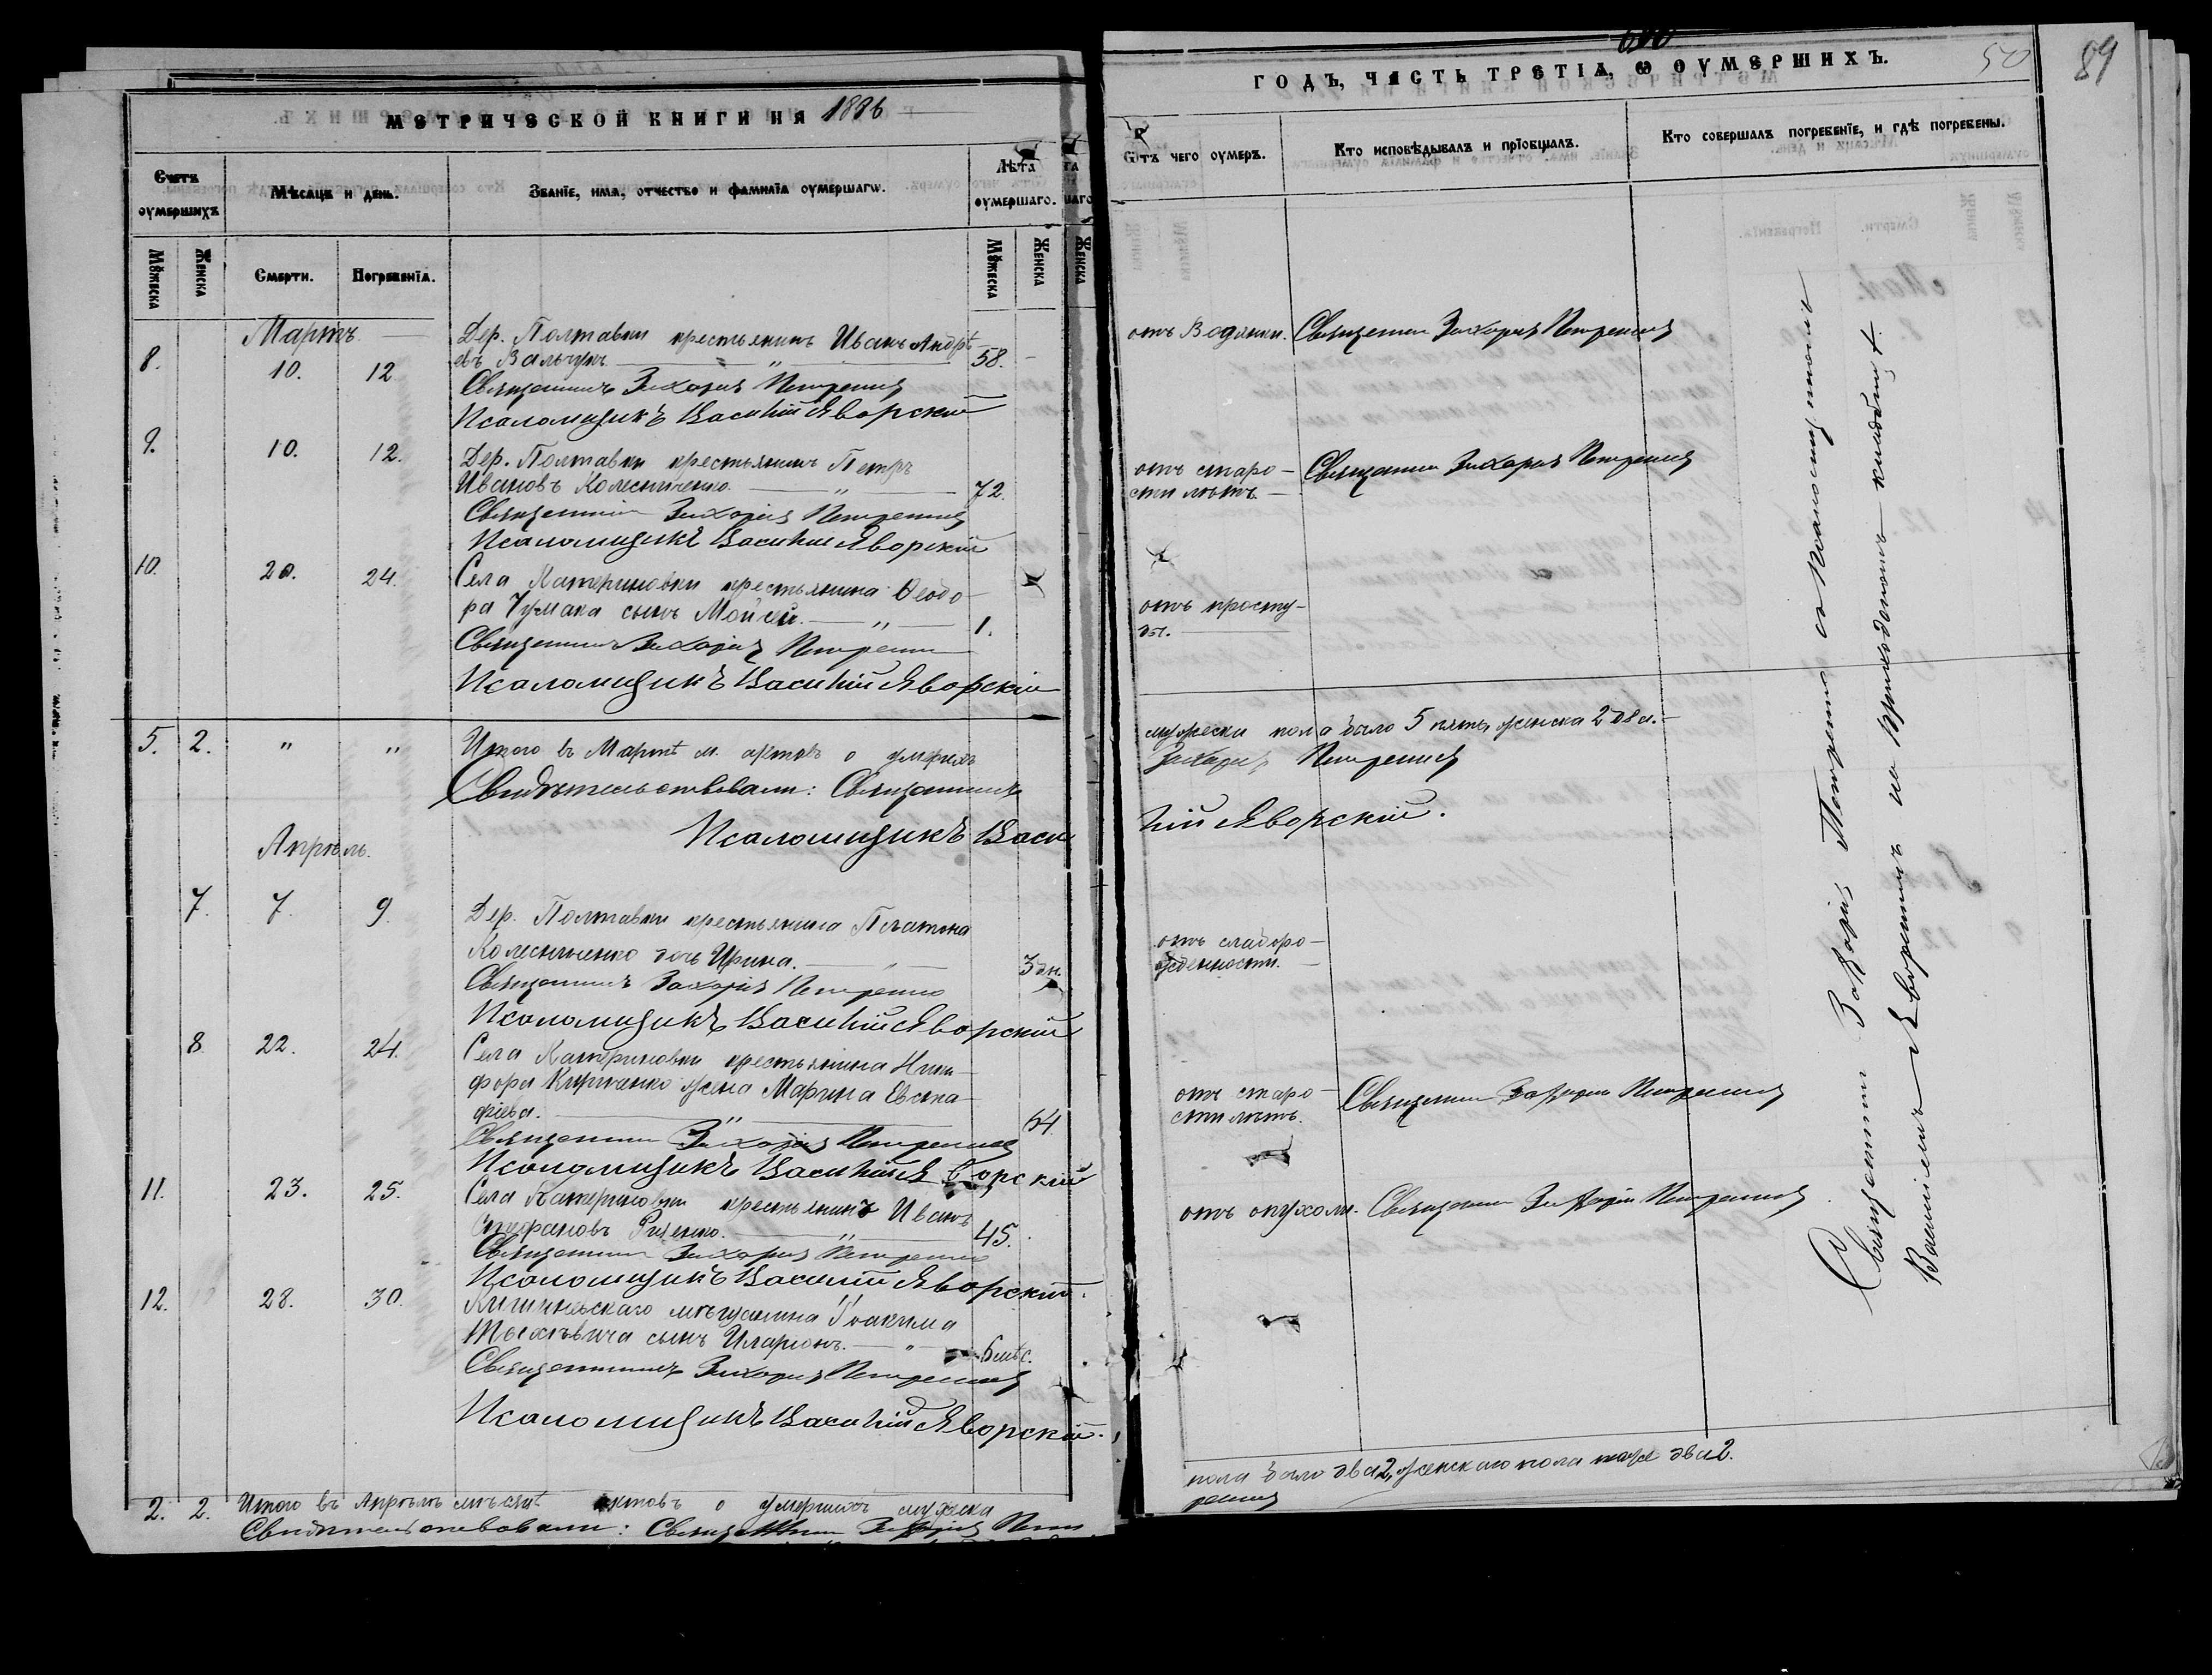 МЕТРИЧЕСКОЙ КНИГИ НА 1886
Счетъ оумершихъ
Мѣсяцъ и день.
Званїе, имя, отчество и фамилїа оумершагѡ.
Лѣта оумершаго.
Мꙋжеска
Женска
Смерти.
Погребенїя.
Мꙋжеска
Женска
Мартъ
8. 10. 12. Дер. Полтавки крестьянинъ Иванъ Андрѣ-
евъ Вальчукъ 58.
Священникъ Захарія Петренко
Псаломщикъ Василій Яворскій
9. 10. 12. Дер. Полтавки крестьянинъ Петръ
Ивановъ Колесниченко. 72.
Священникъ Захарія Петренко
Псаломщикъ Василій Яворскій
10. 20. 24. Села Катериновки крестьянина Ѳеодо-
ра Чумака сынъ Мойсей. 1.
Священникъ Захарія Петренко
Псаломщикъ Василій Яворскій
5. 2. " " Итого въ Мартѣ м. актовъ о умерихъ
Свидѣтельствовали: Священникъ
Псаломщикъ Васи
Апрѣль.
7. 7. 9. Дер. Полтавки крестьянина Платона
Колесниченко дочь Ирина. 3 дн.
Священникъ Захарія Петренко
Псаломщикъ Василій Яворскій
8. 22. 24. Села Катериновки крестьянина Ники-
фора Кириченко жена Марина Евста-
фіева. 64.
Священникъ Захарія Петренко
Псаломщикъ Василій Яворскій
11. 23. 25. Села Катериновки крестьянинъ Иванъ
Стефановъ 45.
Священникъ Захарія Петренко
Псаломщикъ Василій Яворскій.
12. 28. 30. Кишиневскаго мѣщанина Іоакима
сынъ Иларіонъ. 6 мѣс.
Священникъ Захарія Петренко
Псаломщикъ Василій Яворскій.
2. 2. Итого въ Апрѣлѣ мѣсяцѣ актовъ о умершихъ мужеска
Свидѣтельствовали: Священникъ Захарія Пет
ГОДЪ, ЧАСТЬ ТРЕТІѦ, Ѡ ОУМЕРШИХЪ.
50
89
Ѿтъ чего оумеръ.
Кто исповѣдывалъ и прїобщалъ.
Кто совершалъ погребенїе, и гдѣ погребены.
отъ Водянки. Священникъ Захарія Петренко
отъ старо-
сти лѣтъ.
Священникъ Захарія Петренко
отъ просту-
ды.
мужеска пола было 5 пять, женска 2 два.
Захарія Петренко
лій Яворскій.
отъ слаборо-
жденности.
отъ старо-
сти лѣтъ.
Священникъ Захарія Петренко
отъ опухоли. Священникъ Захарія Петренко
пола было два 2, женскаго пола тоже два 2.
ренко
Священникъ Захарія Петренко съ Псаломщикомъ
Василіемъ Яворскимъ на приходскомъ кладбищѣ.